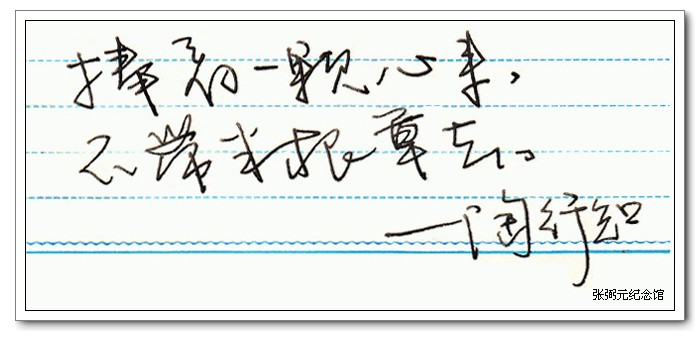 捧着一颗心来，
不带半根草去。
——陶行知
张弼元纪念馆